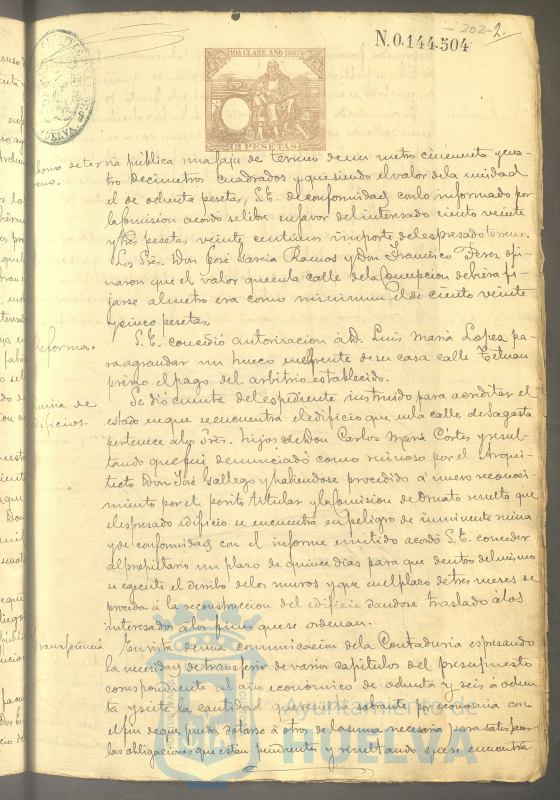 - 202 - 2.
N.0.144.504
10ª CLASE. AÑO 1887
2 PESETAS
HUELVA
via pública una faja de terreno de un metro cincuenta y cua-
tro decimetros cuadrados y que siendo el valor de la unidad
el de ochenta pesetas, S.E. de conformidad con lo informado por
la Comision acordó se libre en favor del interesado ciento veinte
y tres pesetas veinte centimos importe del espresado terreno.
Los Sres. Don José Garcia Ramos y Don Francisco Perez opi-
naron que el valor que en la calle de la Concepcion debiera fi-
jarse al metro era como minimum el de ciento veinte
y cinco pesetas.
Reforma.
S.E. concedió autorizacion á D. Luis Maria Lopez pa-
ra agrandar un hueco en el frente de su casa calle Tetuan
prévio el pago del arbitrio establecido.
ruina de
edificios.
Se dió cuenta del espediente instruido para acreditar el
estado en que se encuentra el edificio que en la calle de Sagasta
pertenece a los Sres. hijos de Don Carlos Maria Cortes y resul-
tando que fué denunciado como ruinoso por el Arqui-
tecto Don José Gallego y habiendose procedido á nuevo reconoci-
miento por el perito titular y la Comision de Ornato resulta que
el espresado edificio se encuentra en peligro de inminente ruina
y de conformidad con el informe emitido acordó S.E. conceder
al propietario un plazo de quince dias para que dentro del mismo
se egecute el derribo de los muros y que en el plazo de tres meses se
proceda á la reconstruccion del edificio dandose traslado á los
interesados a los fines que se ordenan.
Transferencia
En vista de una comunicacion de la Contaduria espresando
la necesidad de transferir de varios capitulos del presupuesto
correspondiente al año economico de ochenta y seis á ochen-
ta y siete la cantidad que resulta sobrante por economia con
el fin de que pueda dotarse á otros de la suma necesaria para satisfacer
las obligaciones que estan pendientes y resultando que se encuentra
Ayuntamiento de
HUELVA